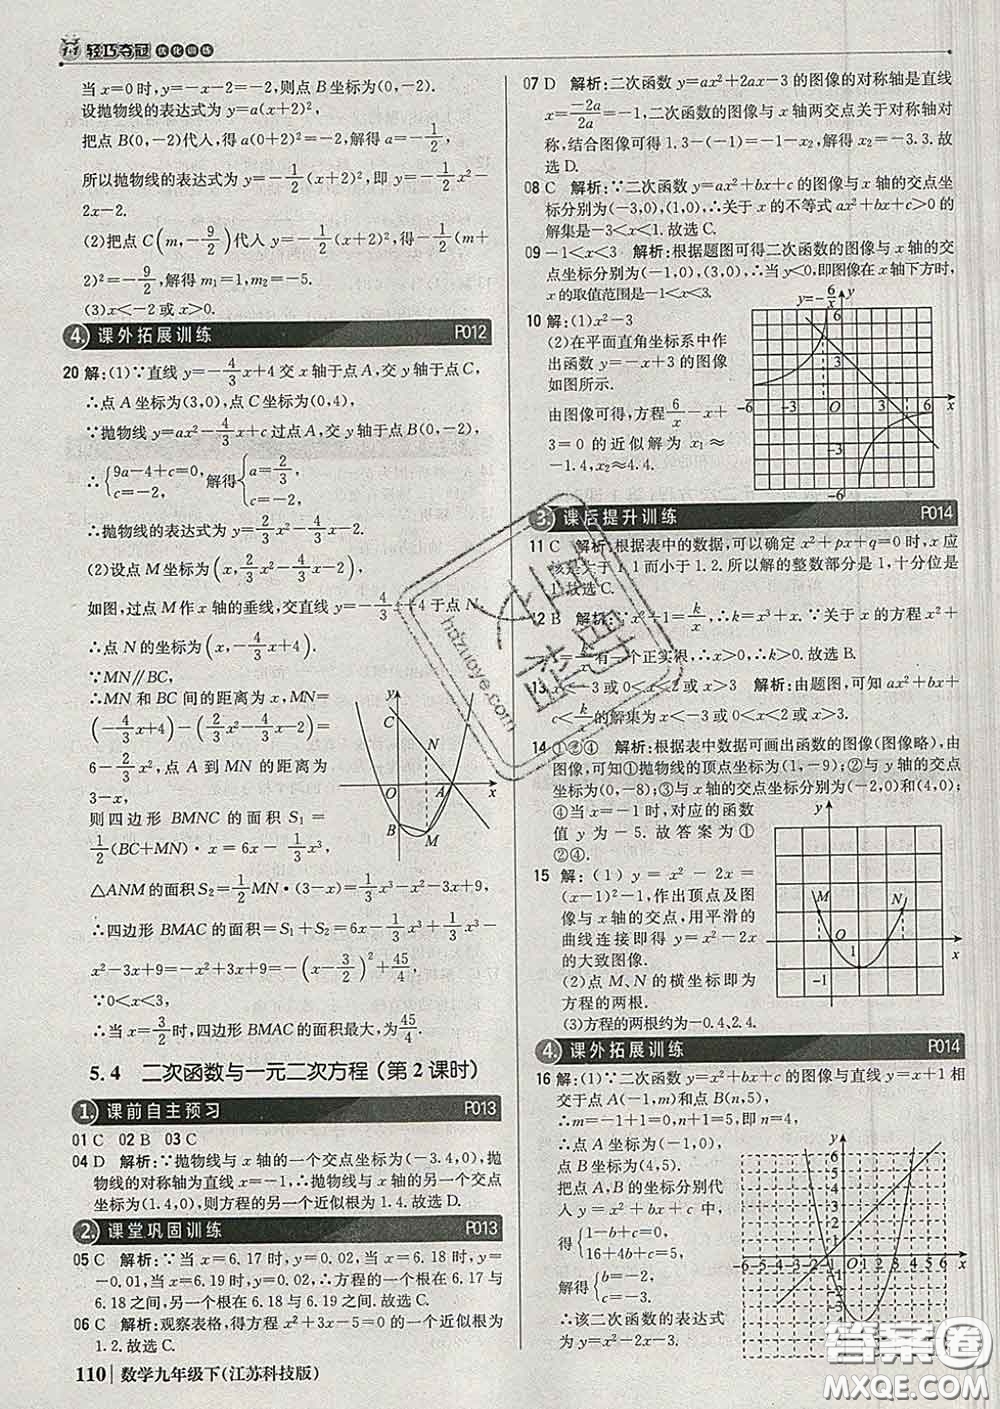 1+1 轻巧夺冠 优化训练
当x=0时,y=-x-2=-2,则点B(0,-2).
设抛物线的表达式为y=a(x+2)²,
把点B(0,-2)代人,得a(0+2)²=-2,解得a=-1/2,
所以抛物线的表达式为y=-1/2(x+2)²,即y=-1/2x²-
2x-2.
(2)把点C(m,-9/2)代人y=-1/2(x+2)²,得-1/2(m+
2)²=-9/2,解得m₁=1,m₂=-5.
(3)x<-2或x>0.
4. 课外拓展训练 P012
20 解:(1)∵直线y=-4/3x+4交x轴于点A,交y轴于点C,
∴点A坐标为(3,0),点C坐标为(0,4),
∵抛物线y=ax²-4/3x+c过点A,交y轴于点B(0,-2),
∴{9a-4+c=0, c=-2, 解得{a=2/3, c=-2,
∴抛物线的表达式为y=2/3x²-4/3x-2.
(2)设点M坐标为(x,2/3x²-4/3x-2),
如图,过点M作x轴的垂线,交直线y=-4/3x+4于点N
∴点N的坐标为(x,-4/3x+4).
∵MN∥BC,
∴MN和BC间的距离为x,MN=
(-4/3x+4)-(2/3x²-4/3x-2)=
6-2/3x²,点A到MN的距离为
3-x,
则四边形BMNC的面积S₁=
1/2(BC+MN)·x=6x-1/3x³,
△ANM的面积S₂=1/2MN·(3-x)=1/3x³-x²-3x+9,
∴四边形BMAC的面积=S₁+S₂=6x-1/3x³+1/3x³-
x²-3x+9=-x²+3x+9=-(x-3/2)²+45/4,
∵0<x<3,
∴当x=3/2时,四边形BMAC的面积最大,为45/4.
y
C
N
O
A
x
B
M
5.4 二次函数与一元二次方程(第2课时)
1. 课前自主预习 P013
01 C 02 B 03 C
04 D 解析:∵抛物线与x轴的一个交点坐标为(-3.4,0),抛
物线的对称轴为直线x=-1,∴抛物线与x轴的另一个交点
坐标为(1.4,0),则方程的另一个近似根为1.4.故选D.
2. 课堂巩固训练 P013
05 C 解析:∵当x=6.17时,y=0.02,当x=6.18时,y=
-0.01,当x=6.19时,y=0.04,∴方程的一个根在6.17与
6.18之间,另一个根在6.18与6.19之间.故选C.
06 C 解析:观察表格,得方程x²+3x-5=0的一个近似根为
1.2.故选C.
110 数学九年级下(江苏科技版)
07 D 解析:二次函数y=ax²+2ax-3的图像的对称轴是直线
x=-2a/2a=-1,二次函数的图像与x轴两交点关于对称轴对
称,结合图像可得1.3-(-1)=-1-x₂,解得x₂=-3.3.故
选D.
08 C 解析:∵二次函数y=ax²+bx+c的图像与x轴的交点坐
标分别为(-3,0),(1,0),∴关于x的不等式ax²+bx+c>0的
解集是-3<x<1.故选C.
09 -1<x<3 解析:根据题图可得二次函数的图像与x轴的交
点坐标分别为(-1,0),(3,0),∴当y<0,即图像在x轴下方时,
x的取值范围是-1<x<3.
10 解:(1)x²-3
(2)在平面直角坐标系中作
出函数y=-x+3的图像
如图所示.
由图像可得,方程6/x-x+
3=0的近似解为x₁≈
-1.4,x₂≈4.4.
y=-6/x
y
6
3
-6 -3 O 3 6 x
-3
-6
3. 课后提升训练 P014
11 C 解析:根据表中的数据,可以确定x²+px+q=0时,x应
该是大于1.1而小于1.2.所以解的整数部分是1,十分位是
1.故选C.
12 B 解析:∵x²+1=k/x,∴k=x³+x.∵关于x的方程x²+
有一个正实根,∴x>0,∴k>0.故选B.
13 x<-3或0<x<2或x>3 解析:由题图,可知ax²+bx+
c<k/x的解集为x<-3或0<x<2或x>3.
14 ①②④ 解析:根据表中数据可画出函数的图像(图像略),由
图像,可知①抛物线的顶点坐标为(1,-9);②与y轴的交点坐标为
(0,-8);③与x轴的交点坐标分别为(-2,0)和(4,0);
④当x=-1时,对应的函数
值y为-5.故答案为①
②④.
15 解:(1)y=x²-2x=
(x-1)²-1,作出顶点及图
像与x轴的交点,用平滑的
曲线连接即得y=x²-2x
的大致图像.
(2)点M、N的横坐标即为
方程的两根.
(3)方程的两根约为-0.4、2.4.
y
M
N
O 1 x
-1
4. 课外拓展训练 P014
16 解:(1)∵y=x²+bx+c的图像与直线y=x+1相
交于点A(-1,m)和点B(n,5),
∴m=-1+1=0,n+1=5,即n=4,
∴点A坐标为(-1,0),
点B坐标为(4,5).
把点A、B坐标分别代
人y=x²+bx+c,
得{1-b+c=0, 16+4b+c=5,
解得{b=-2, c=-3,
∴该二次函数的表达式
为y=x²-2x-3.
y
6
5
4
3
2
-6-5-4-3-2-1 O 1 2 3 4 5 6 x
hdzuoye.com
答案卷
MXQE.COM